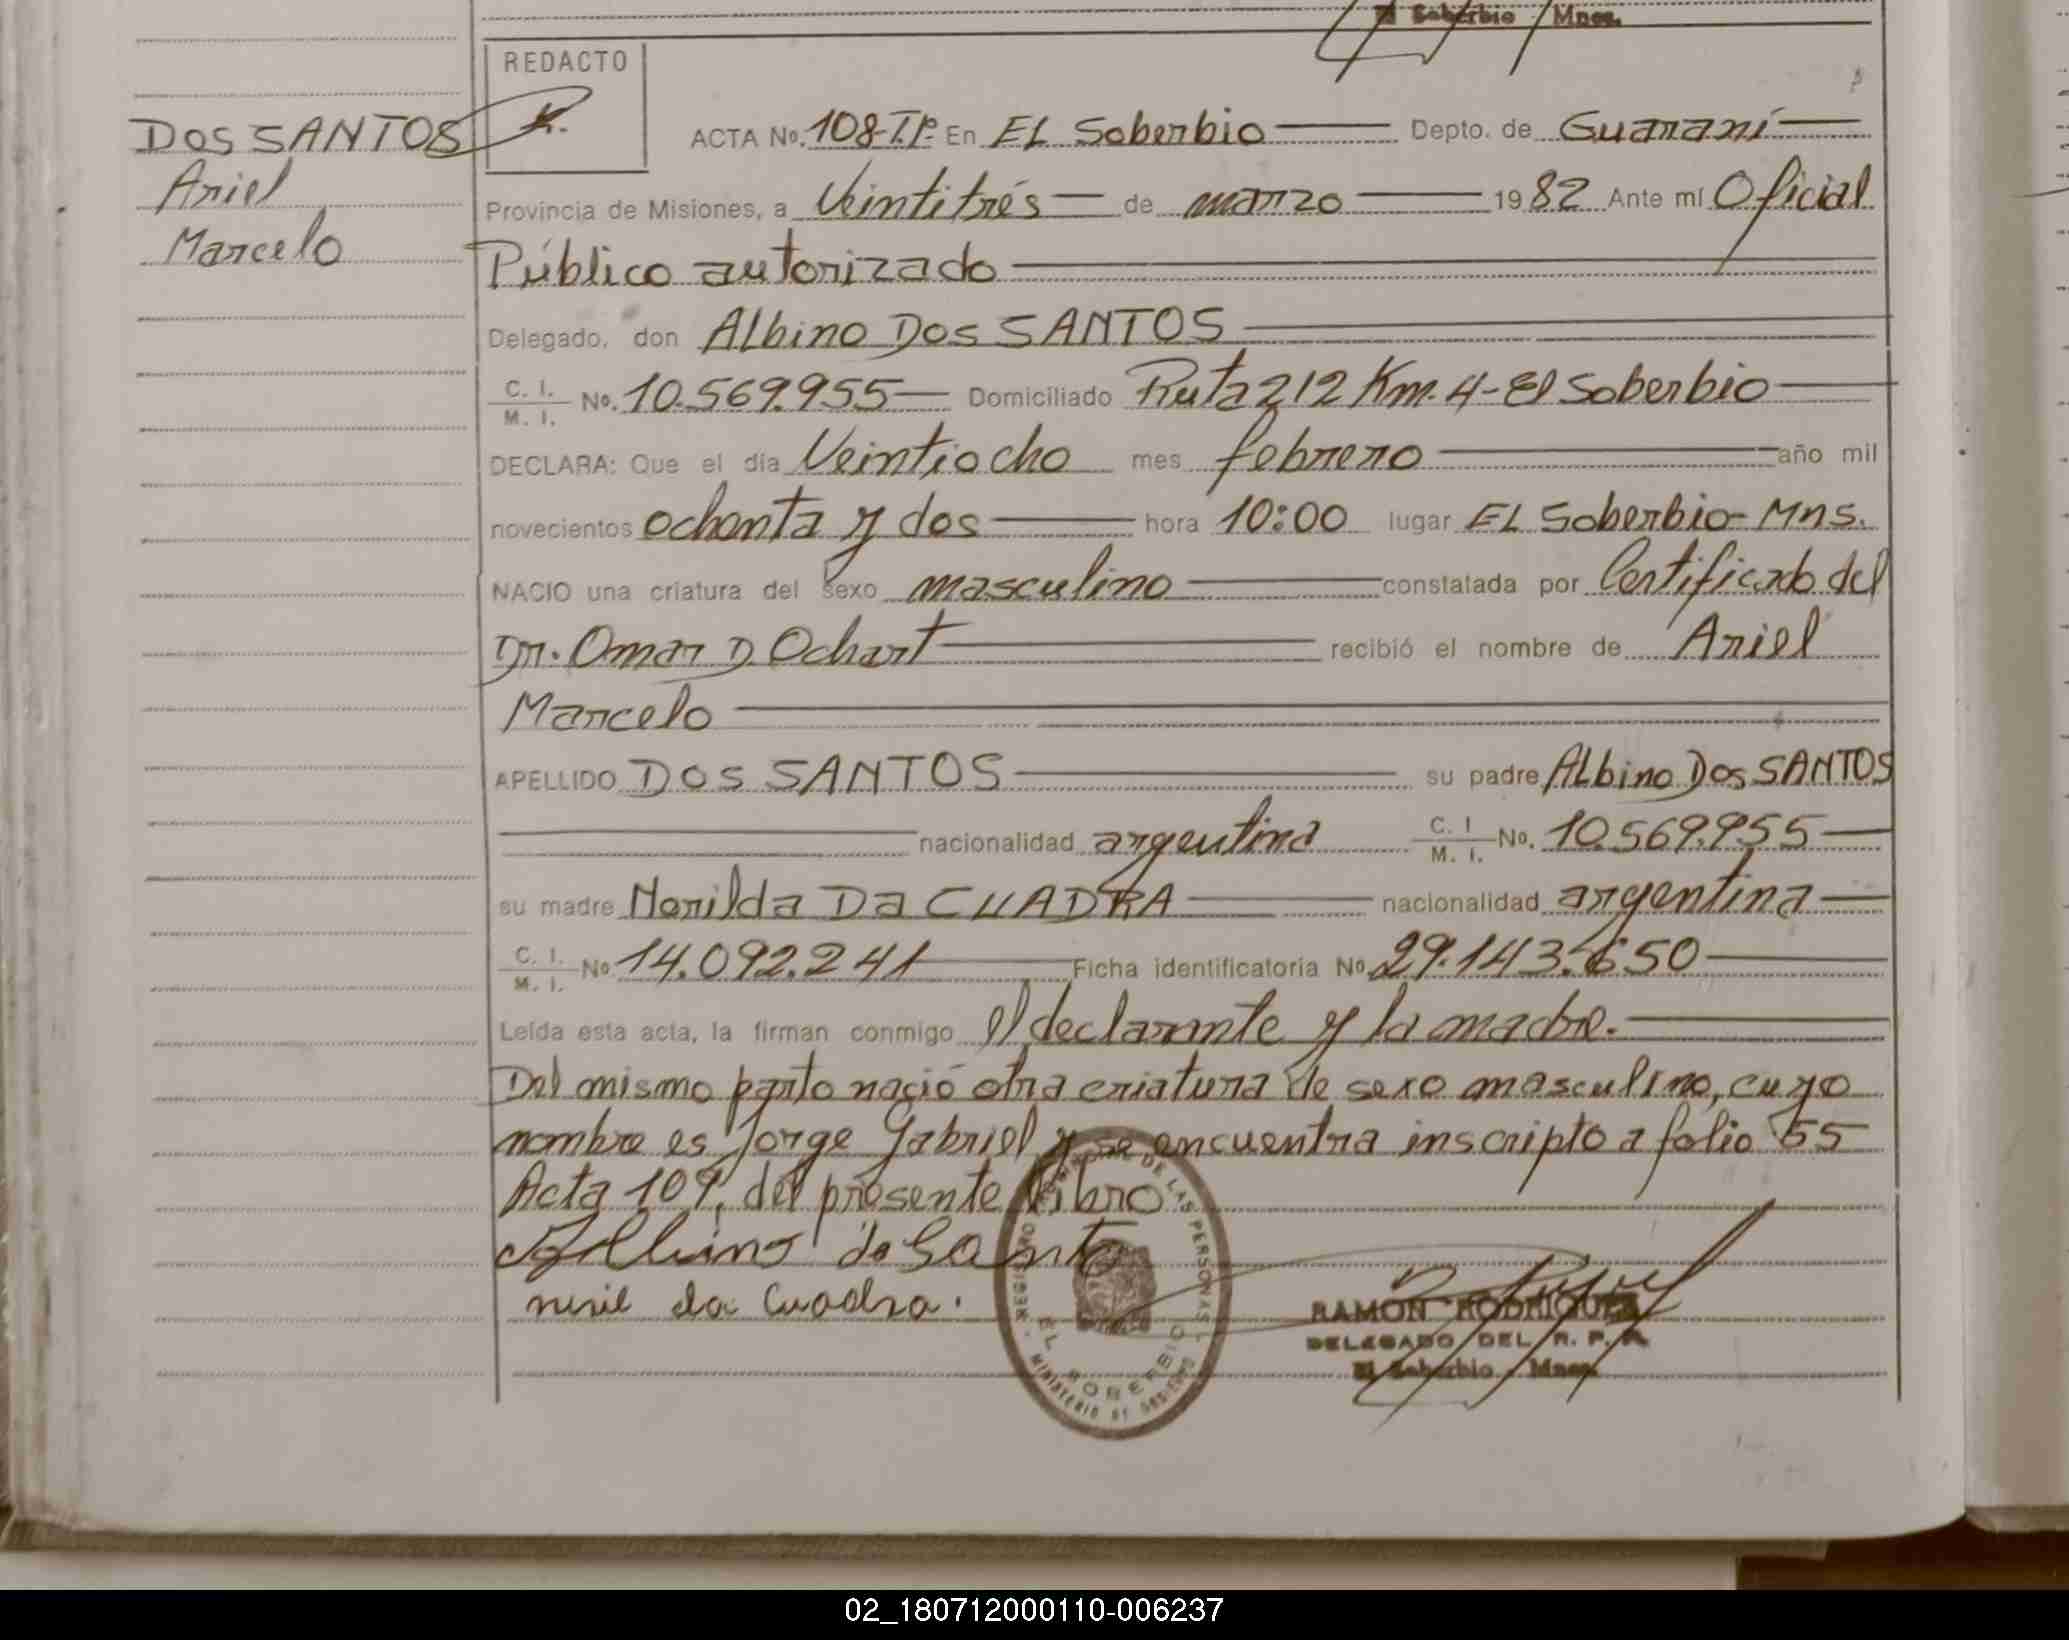 El Soberbio - Mnes.
REDACTO
DOS SANTOS
Ariel
Marcelo
ACTA No. 108-T.I°- En EL Soberbio Depto. de Guaraní
Provincia de Misiones, a Veintitrés de marzo 1982 Ante mí Oficial
Público autorizado
Delegado, don Albino Dos SANTOS
C. I. / M. I. No. 10.569.955 Domiciliado Ruta 212 Km. 4- El Soberbio
DECLARA: Que el día Veintiocho mes febrero año mil
novecientos ochenta y dos hora 10:00 lugar EL Soberbio- Mns.
NACIO una criatura del sexo masculino constatada por Certificado del
Dr. Omar D. Ochart recibió el nombre de Ariel
Marcelo
APELLIDO DOS SANTOS su padre Albino Dos SANTOS
nacionalidad argentina C. I / M. I. No. 10.569.955
su madre Norilda Da CUADRA nacionalidad argentina
C. I. / M. I. No 14.092.241 Ficha identificatoria No. 29.143.650
Leída esta acta, la firman conmigo el declarante y la madre.
Del mismo parto nació otra criatura de sexo masculino, cuyo
nombre es Jorge Gabriel y se encuentra inscripto a folio 55
Acta 109, del presente libro
Albino do Santo
da Cuadra.
DE LAS PERSONAS
EL SOBERBIO
RAMON RODRIGUEZ
DELEGADO DEL R. P. P.
El Soberbio - Mnes.
02_180712000110-006237